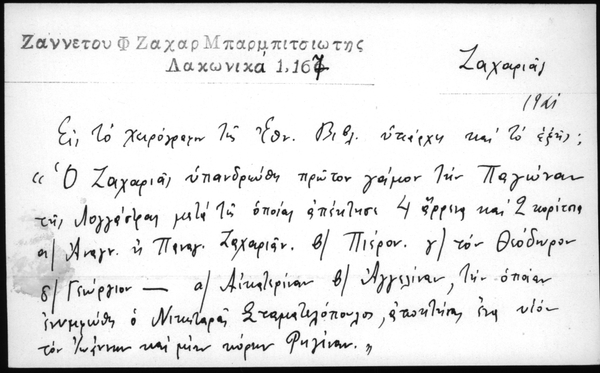 Ζαννετου Φ Ζαχαρ Μπαρμπιτσιωτης
Λακωνικά 1,167
Ζαχαριᾶς
1921
Εἰς τὸ χειρόγραφον τῆς Ἐθν. Βιβλ. ὑπάρχει καὶ τὸ ἑξῆς:
« Ὁ Ζαχαριᾶς ὑπανδρεύθη πρῶτον γάμον τὴν Παγώναν
τῆς Λογγάστρας μετὰ τῆς ὁποίας ἀπέκτησε 4 ἄρρενα καὶ 2 κορίτσια
α/ Ἀναγν. ἢ Παναγ. Ζαχαριᾶν. β/ Πιέρον. γ/ τὸν Θεόδωρον
δ/ Γεώργιον — α/ Αἰκατερίναν β/ Ἀγγελίναν, τὴν ὁποίαν
ἐνυμφεύθη ὁ Νικηταρᾶς Σταματελόπουλος, ἀποκτήσας ἕνα υἱὸν
τὸν Ἰωάννην καὶ μίαν κόρην Ρηγίναν. »